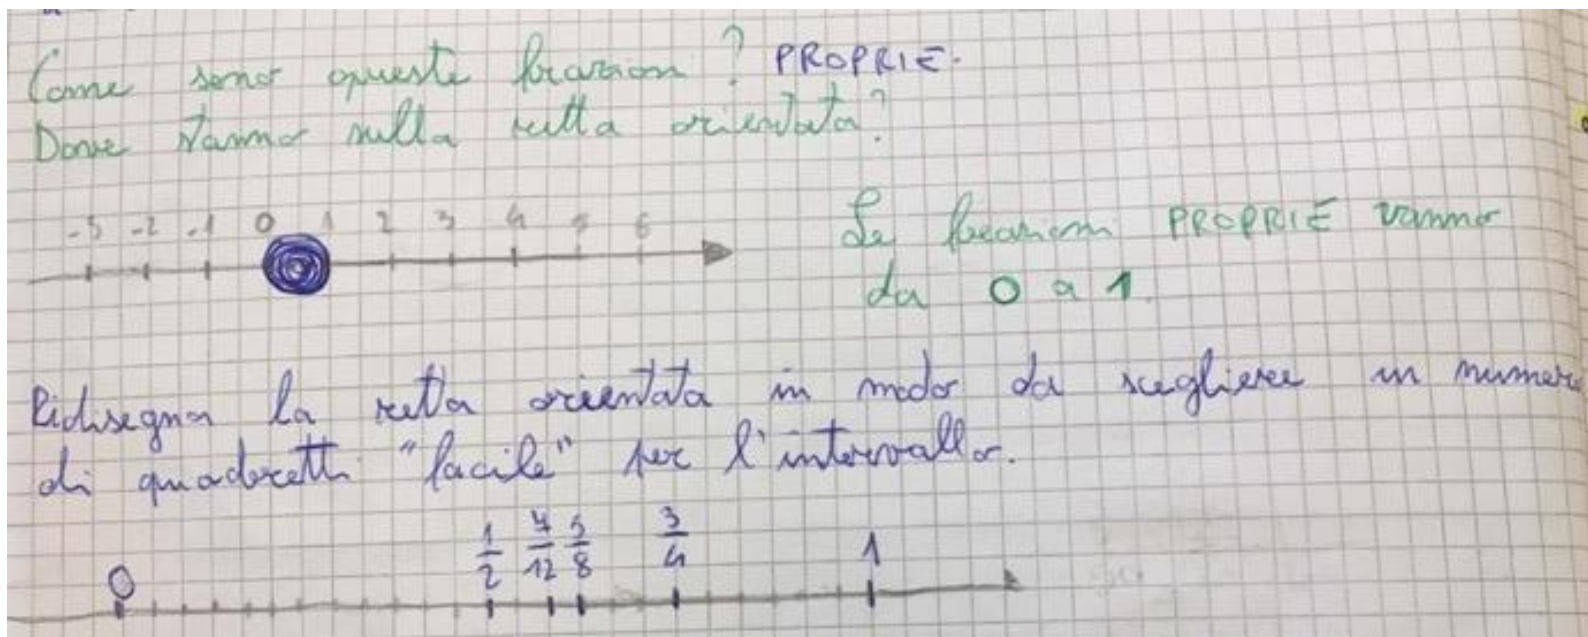 Come sono queste frazioni? PROPRIE.
Dove stanno nella retta orientata?
-3 -2 -1 0 1 2 3 4 5 6
Le frazioni PROPRIE vanno
da 0 a 1.
Ridisegna la retta orientata in modo da scegliere un numero
di quadretti "facile" per l'intervallo.
0 1/2 7/12 5/8 3/4 1